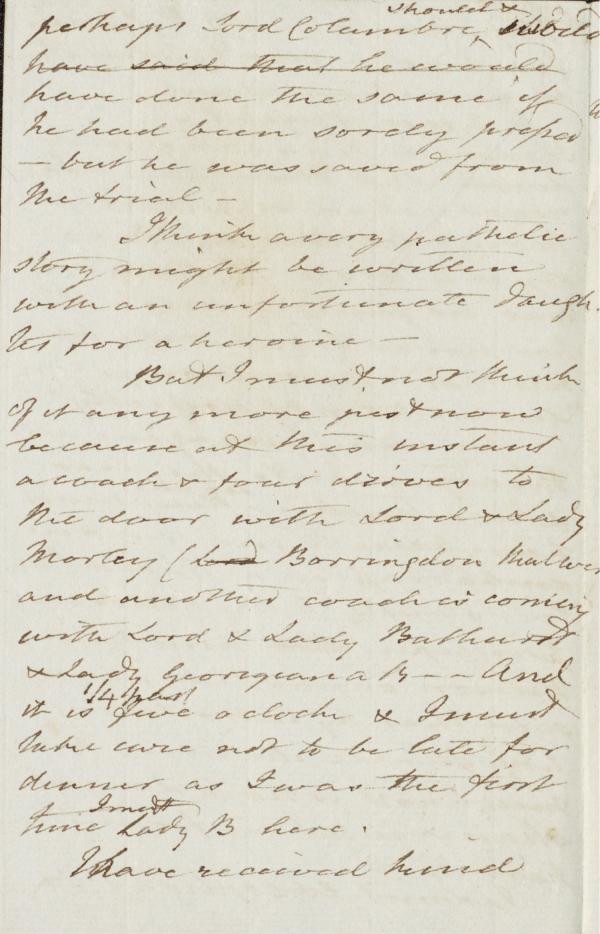 should &
perhaps Lord Colambre,
have said that he would
have done the same if
he had been sorely pressed
– but he was saved from
the trial –
I think a very pathetic
story might be written
with an unfortunate Daugh-
ter for a heroine –
But I must not think
of it any more just now
because at this instant
a coach & four drives to
the door with Lord & Lady
Morley (Lord Borringdon that was
and another coach is coming
with Lord & Lady Bathurst
& Lady Georgiana B – – And
1/4 past
it is five o clock & I must
take care not to be late for
dinner as I was the first
I met
time Lady B here.
I have received kind